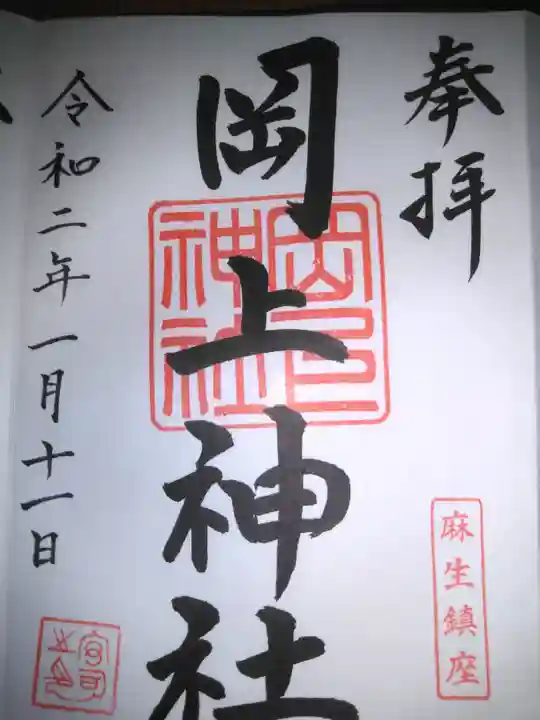 奉拝
麻生鎮座
岡上神社
令和二年一月十一日